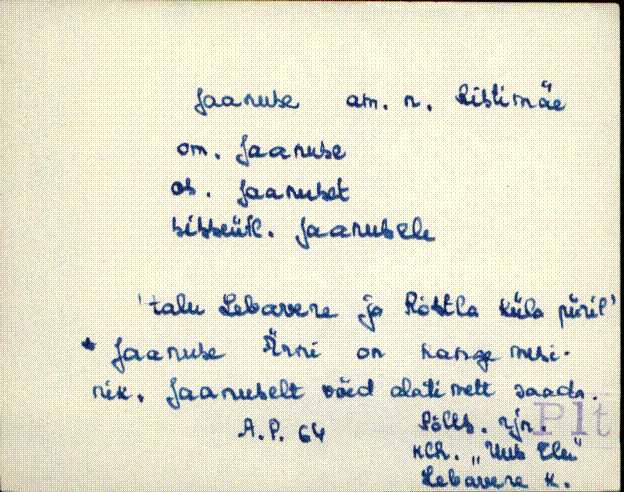 Jaanuse am. n. Ristimäe
om. Jaanuse
os. Jaanuset
sisseütl. Jaanusele
'talu Lebavere ja Rõstla küla piiril'
* Jaanuse Ärni on kange mesi-
nik. Jaanuselt võid alati mett saada.
A.P. 64
Põlts. rjn.
kch. „Uus Elu"
Lebavere k.
Plt